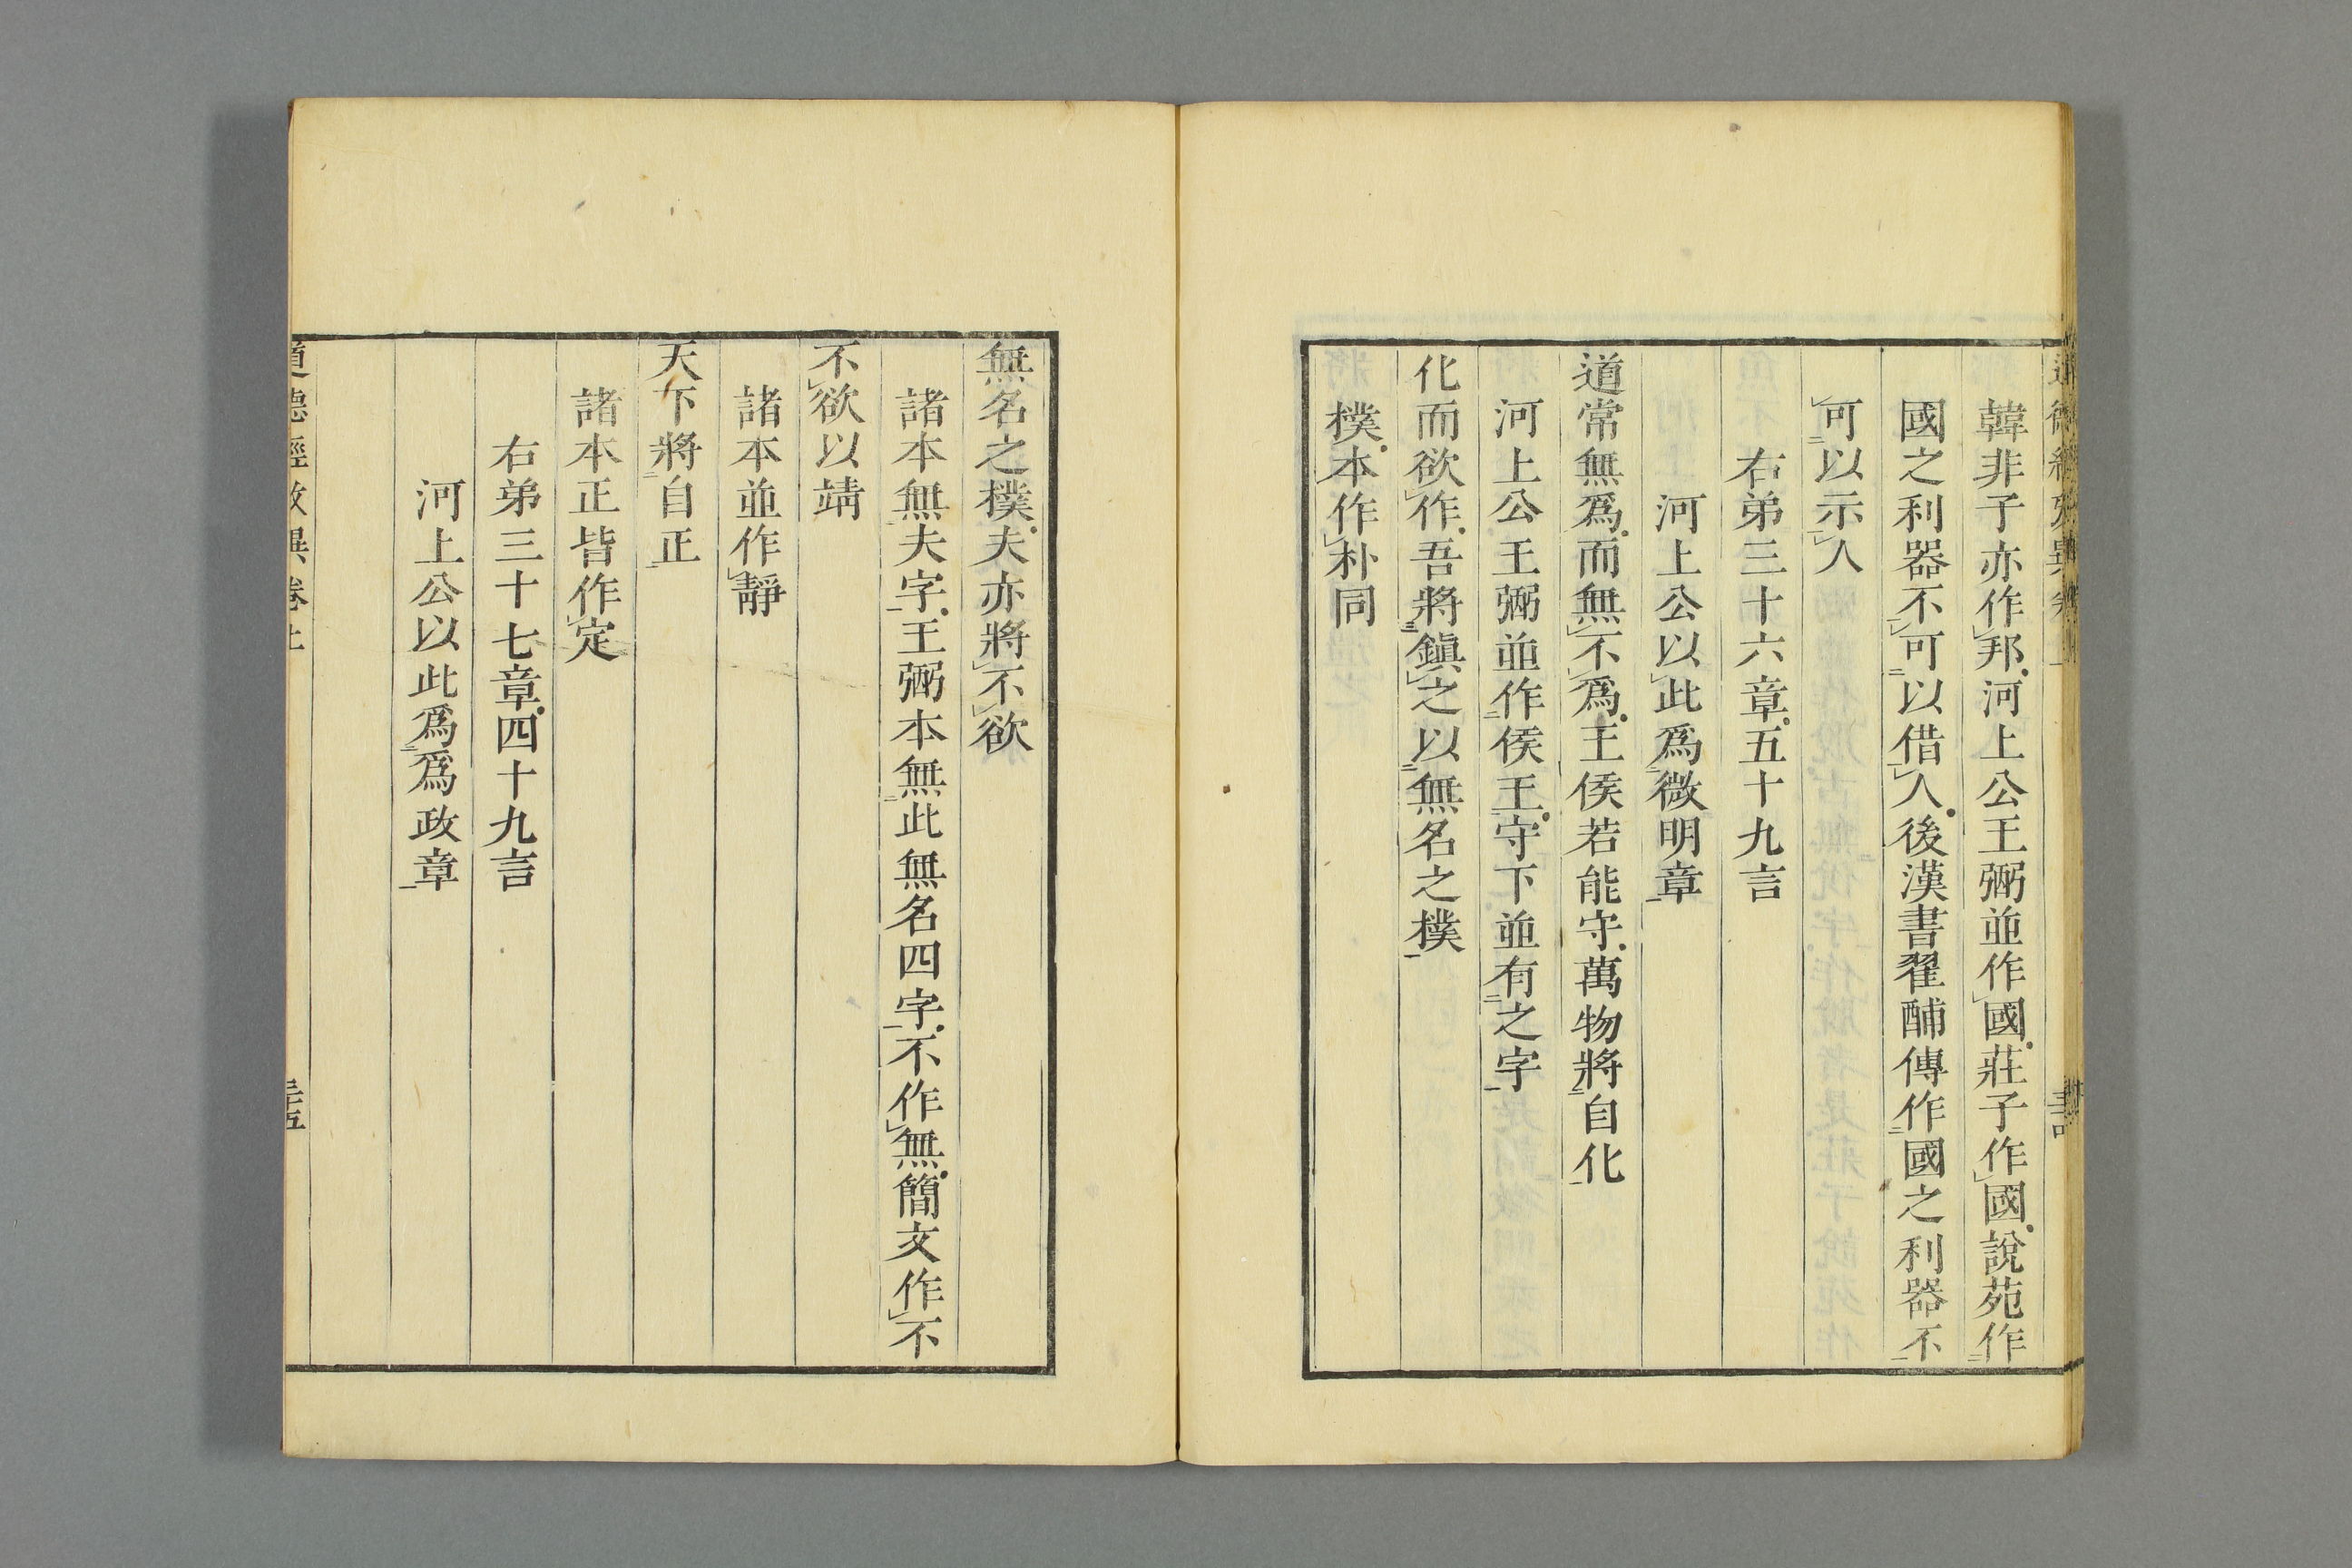 韓非子亦作邦河上公王弼並作國莊子作國說苑作
國之利器不可以借人後漢書翟酺傳作國之利器不
可以示人
右弟三十六章五十九言
河上公以此爲微明章
道常無爲而無不爲王侯若能守萬物將自化
河上公王弼並作侯王守下並有之字
化而欲作吾將鎭之以無名之樸
樸本作朴同
無名之樸夫亦將不欲
諸本無夫字王弼本無此無名四字不作無簡文作不
不欲以靖
諸本並作靜
天下將自正
諸本正皆作定
右弟三十七章四十九言
河上公以此爲爲政章
道德經攷異卷上
三十五